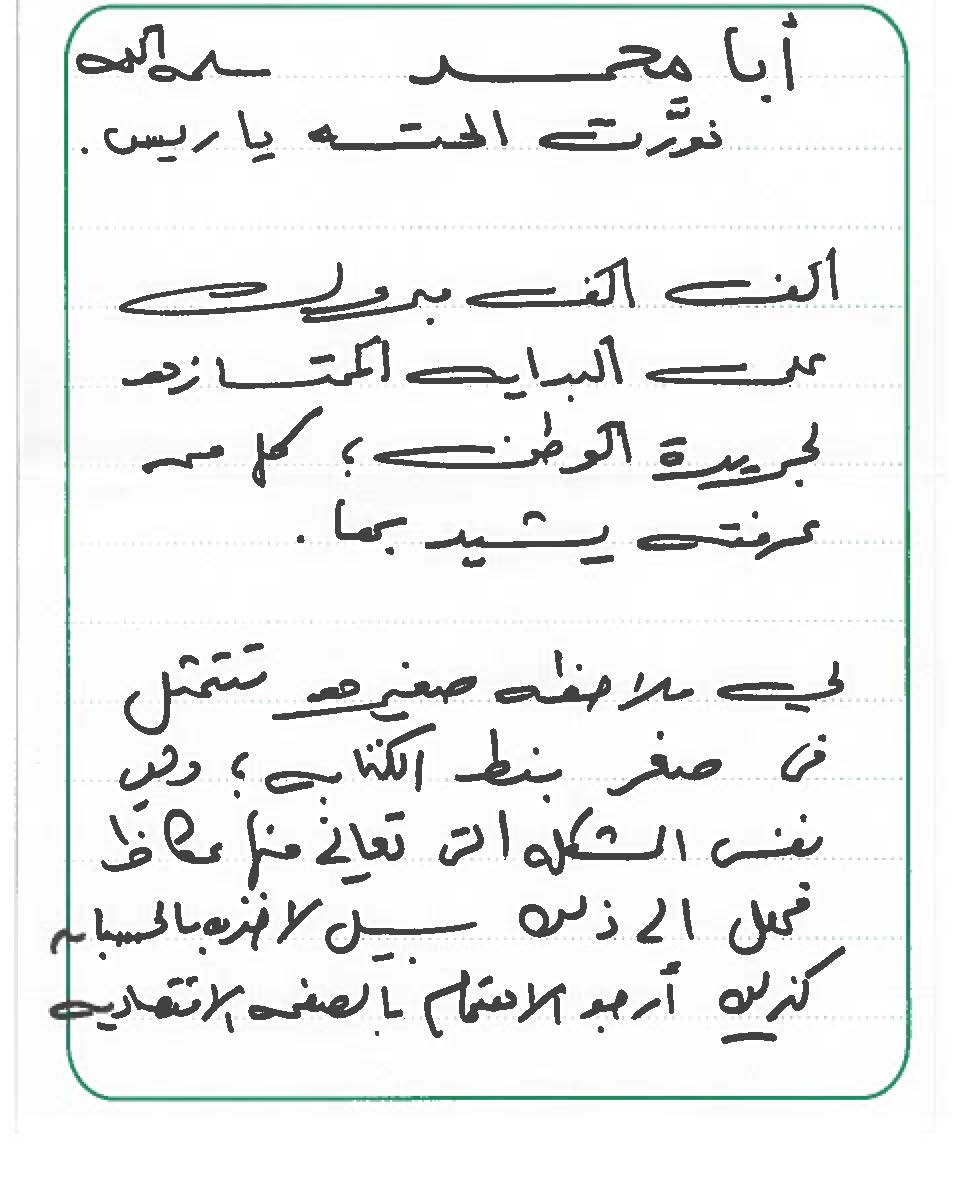 أبا محمد سلمه الله
نورَّت الحته يا ريس .
الف الف مبروك
على البدايه الممتازه
لجريدة الوطن ، كل من
عرفته يشيد بها .
لي ملاحظه صغيره تتمثل
في صغر بنط الكتابه ، وهي
نفس المشكله التي تعاني منها عكاظ
فهل الى ذلك سبيل لاخذه بالحسبان
كذلك أرجو الاهتمام بالصفحه الاقتصاديه